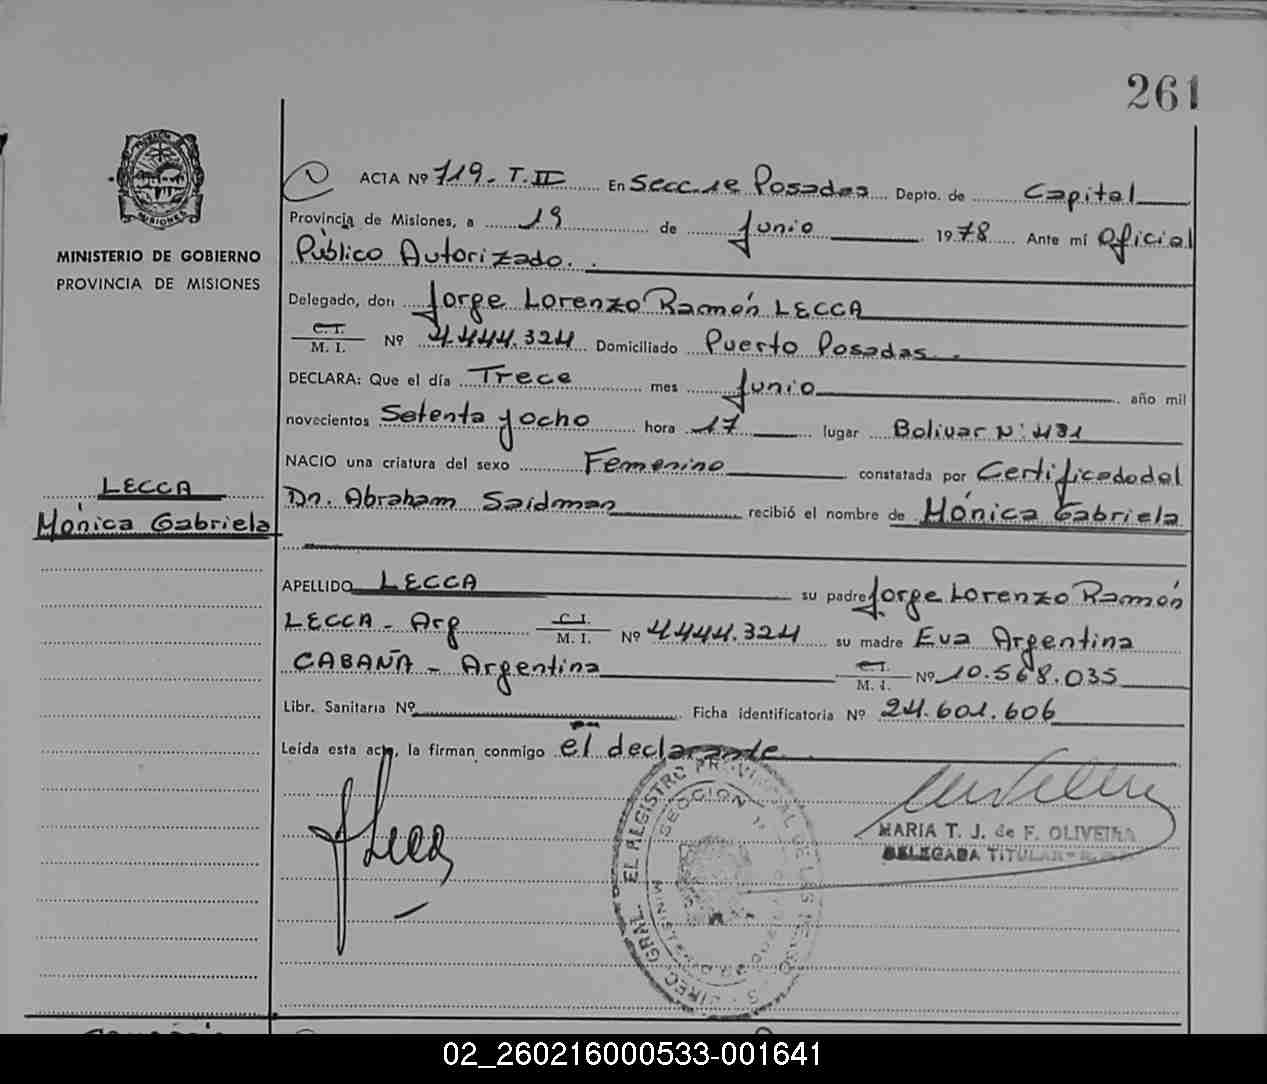 261
ACTA Nº 719. T. II En Secc. 1ª Posadas Depto. de Capital
Provincia de Misiones, a 19 de Junio 1978 Ante mí Oficial
MINISTERIO DE GOBIERNO
PROVINCIA DE MISIONES
Público Autorizado.
Delegado, don Jorge Lorenzo Ramón LECCA
C. I.
M. I. Nº 4.444.324 Domiciliado Puerto Posadas.
DECLARA: Que el día Trece mes Junio año mil
novecientos Setenta y ocho hora 17 lugar Bolivar Nº 431
NACIO una criatura del sexo Femenino constatada por Certificado del
LECCA
Mónica Gabriela
Dr. Abraham Saidman recibió el nombre de Mónica Gabriela
APELLIDO LECCA su padre Jorge Lorenzo Ramón
LECCA - Arg C. I. M. I. Nº 4.444.324 su madre Eva Argentina
CABAÑA - Argentina C. I. M. I. Nº 10.568.035
Libr. Sanitaria Nº Ficha identificatoria Nº 24.601.606
Leída esta acta, la firman conmigo el declarante
MARIA T. J. de F. OLIVEIRA
DELEGADA TITULAR
02_260216000533-001641